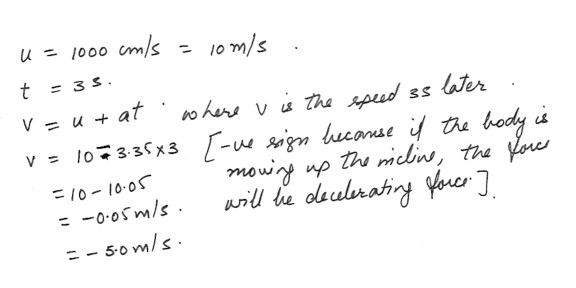 u = 1000 cm/s = 10 m/s .
t = 3 s.
v = u + at . where v is the speed 3s later .
v = 10 - 3.35 x 3 [-ve sign because if the body is
moving up the incline, the force
= 10 - 10.05
will be decelerating force.]
= -0.05 m/s .
= - 5.0 m/s .